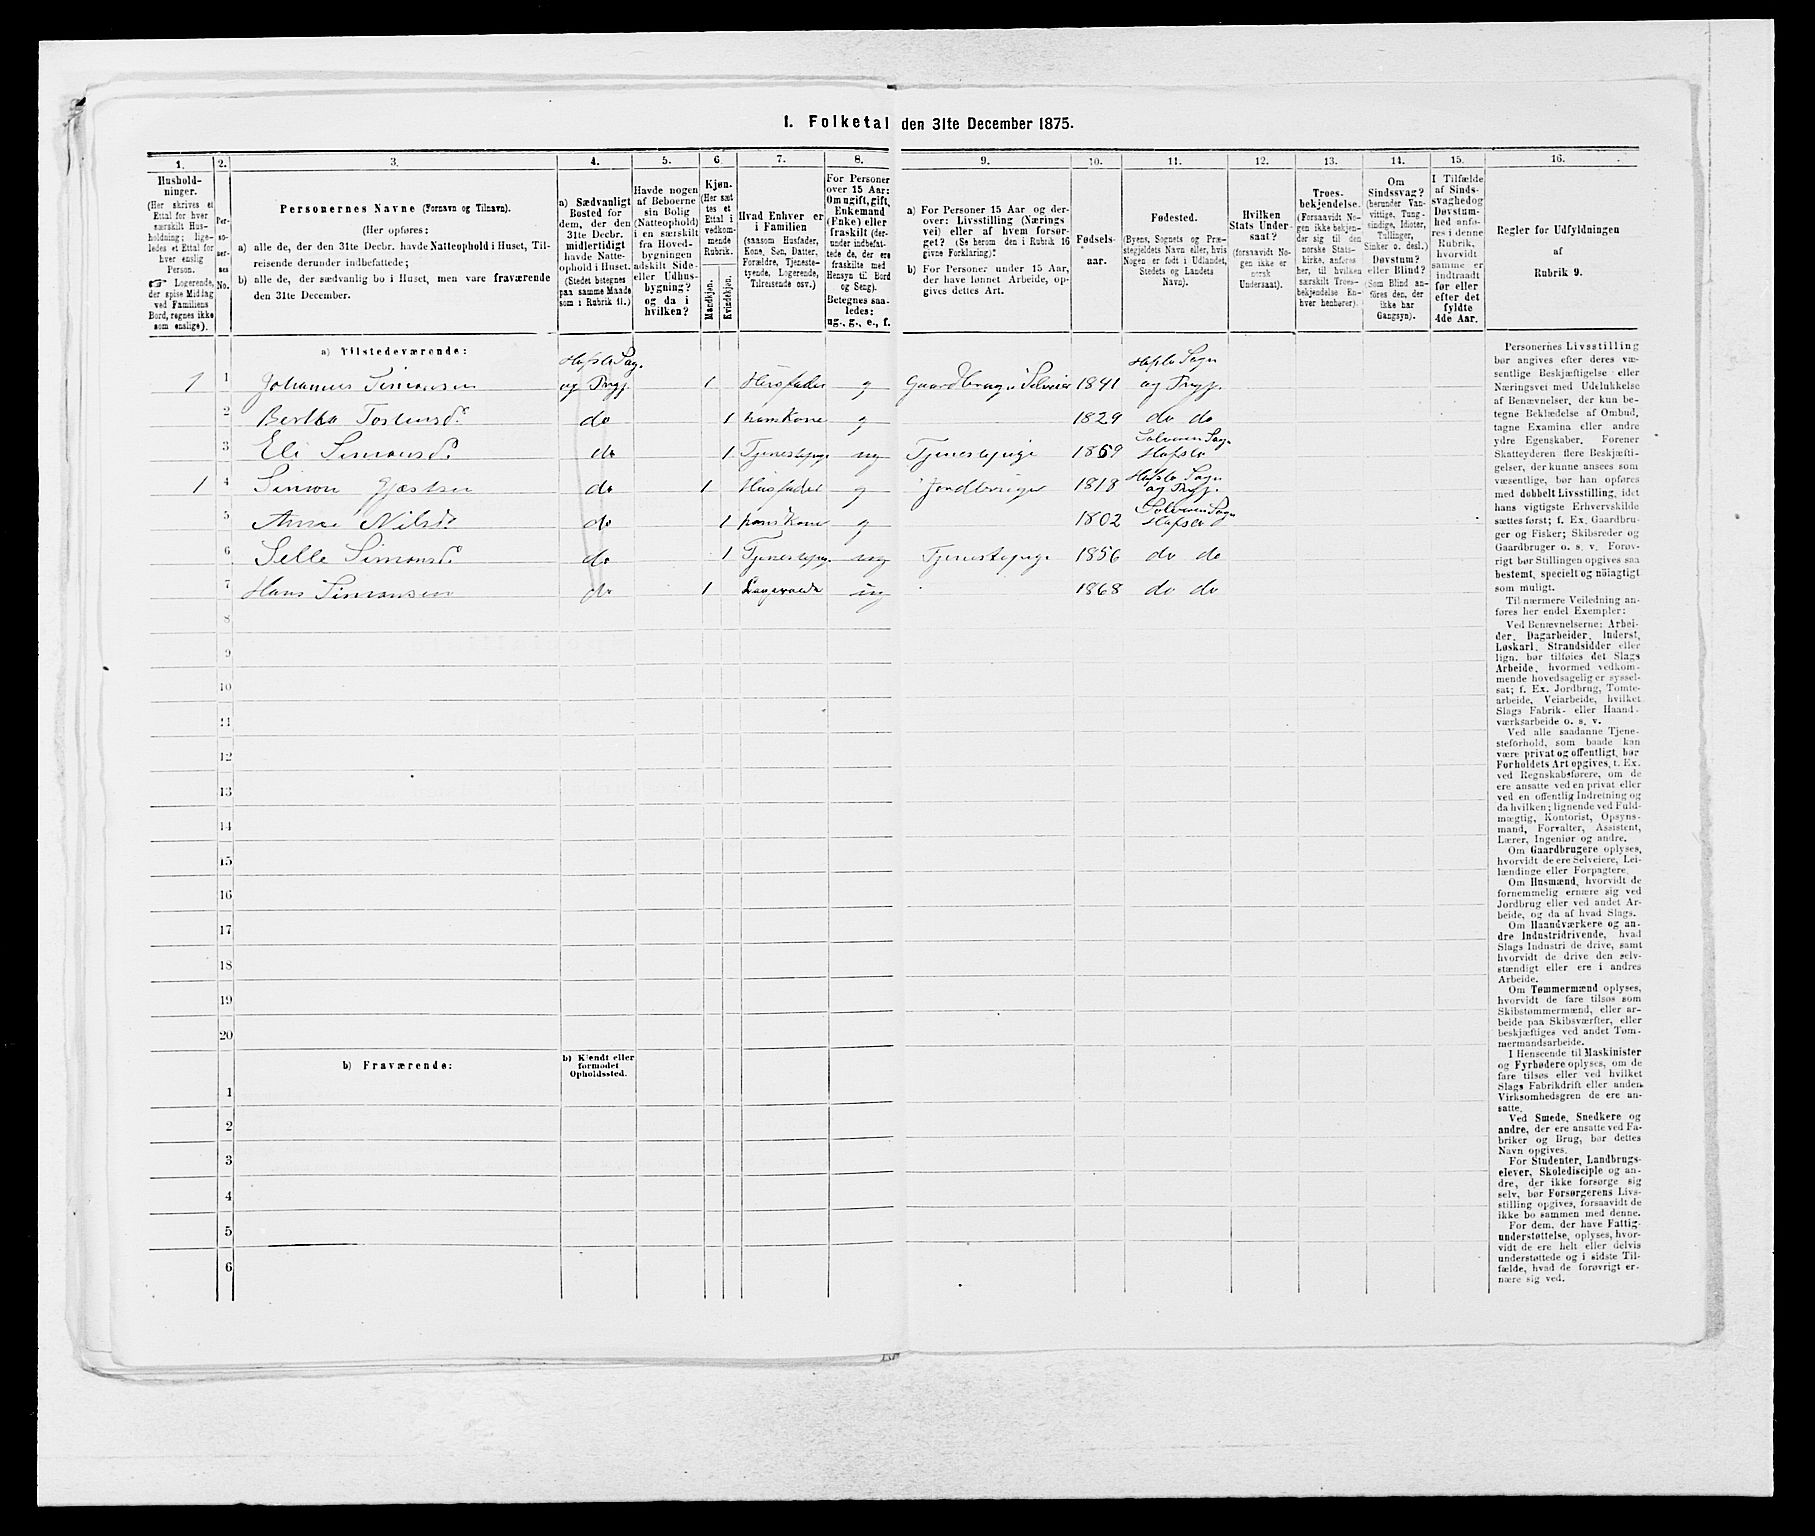 I. Folketal den 31te December 1875.
1. 2. 3. 4. 5. 6. 7. 8. 9. 10. 11. 12. 13. 14. 15. 16.
Hushold-
ninger.
(Her skrives et
Ettal for hver
særskilt Hus-
holdning; lige-
ledes et Ettal for
hver enslig
Person.
☞ Logerende,
der spise Middag
ved Familiens
Bord, regnes ikke
som enslige).
Per-
so-
ner-
nes
No.
Personernes Navne (Fornavn og Tilnavn).
(Her opføres:
a) alle de, der den 31te Decbr. havde Natteophold i Huset, Til-
reisende derunder indbefattede;
b) alle de, der sædvanlig bo i Huset, men vare fraværende
den 31te December.
a) Sædvanligt
Bosted for
dem, der den
31te Decbr.
midlertidigt
havde Natte-
ophold i Huset.
(Stedet betegnes
paa samme Maade
som i Rubrik 11.)
Havde nogen
af Beboerne
sin Bolig
(Natteophold)
i en særskilt
fra Hoved-
bygningen
adskilt Side-
eller Udhus-
bygning?
og da i
hvilken?
Kjøn.
(Her sæt
tes et
Ettal i
vedkom-
mende
Rubrik.
Mandkjøn.
Kvindekjøn.
Hvad Enhver er
i Familien
(saasom Husfader,
Kone, Søn, Datter,
Forældre, Tjeneste-
tyende, Logerende,
Tilreisende osv.)
For Personer
over 15 Aar:
Om ugift, gift,
Enkemand
(Enke) eller
fraskilt (der-
under indbefat-
tede de, der ere
fraskilte med
Hensyn til Bord
og Seng).
Betegnes saa-
ledes:
ug., g., e., f.
a) For Personer 15 Aar og der-
over: Livsstilling (Nærings
vei) eller af hvem forsør-
get? (Se herom den i Rubrik 16
givne Forklaring);
b) For Personer under 15 Aar,
der have lønnet Arbeide, op-
gives dettes Art.
Fødsels-
aar.
Fødested.
(Byens, Sognets og Præ-
stegjeldets Navn eller, hvis
Nogen er født i Udlandet,
Stedets og Landets
Navn).
Hvilken
Stats Under-
saat?
(forsaavidt No-
gen ikke er
norsk
Undersaat).
Troes-
bekjendelse.
(Forsaavidt No-
gen ikke bekjen-
der sig til den
norske Stats-
kirke, anføres
her, til hvilken
særskilt Troes-
bekjendelse En-
hver henhører).
Om
Sindssvag?
(herunder Van-
vittige, Tung-
sindige, Idioter,
Tullinger,
Sinker o. desl.)
Døvstum?
eller Blind?
(Som Blind an-
føres den, der
ikke har
Gangsyn).
I Tilfælde
af Sinds-
svaghed og
Døvstum-
hed anfø-
res i denne
Rubrik,
hvorvidt
samme er
indtraadt
før eller
efter det
fyldte
4de Aar.
Regler for Udfyldningen
af
Rubrik 9.
a) Tilstedeværende:
1 1 Johannes Simonsen Hafslo Sog. og Prgj. 1 Husfader g Gaardbruger Selveier 1841 Hafslo Sogn og Prgj.
2 Bertha Tostensd. do 1 hans Kone g 1829 do do
3 Eli Simonsd. do 1 Tjenestepige ug Tjenestepige 1859 Solvorn Sogn Hafslo
1 4 Simon do 1 Husfader g Jordbruger 1818 Hafslo Sogn og Prgj.
5 Anna Nilsd. do 1 hans Kone g 1802 Solvorn Sogn Hafslo
6 Selle Simonsd. do 1 Tjenestepige ug Tjenestepige 1856 do do
7 Hans Simonsen do 1 ug 1868 do do
8
9
10
11
12
13
14
15
16
17
18
19
20
b) Fraværende:
b) Kjendt eller
formodet
Opholdssted.
1
2
3
4
5
6
Personernes Livsstilling
bør angives efter deres væ-
sentlige Beskjæftigelse eller
Næringsvei med Udelukkelse
af Benævnelser, der kun be-
tegne Beklædelse af Ombud,
tagne Examina eller andre
ydre Egenskaber. Forener
Skatteyderen flere Beskjæfti-
gelser, der kunne ansees som
væsentlige, bør han opføres
med dobbelt Livsstilling, idet
hans vigtigste Erhvervskilde
sættes først; f. Ex. Gaardbru-
ger og Fisker; Skibsreder og
Gaardbruger o. s. v. Forøv-
rigt bør Stillingen opgives saa
bestemt, specielt og nøiagtigt
som muligt.
Til nærmere Veiledning an-
føres her endel Exempler:
Ved Benævnelserne: Arbei-
der, Dagarbeider, Inderst,
Løskarl, Strandsidder eller
lign. bør tilføies det Slags
Arbeide, hvormed vedkom-
mende hovedsagelig er syssel-
sat; f. Ex. Jordbrug, Tomte-
arbeide, Veiarbeide, hvilket
Slags Fabrik- eller Haand-
værksarbeide o. s. v.
Ved alle saadanne Tjene-
steforhold, som baade kan
være privat og offentligt, bør
Forholdets Art opgives, t. Ex.
ved Regnskabsførere, om de
ere ansatte ved en privat eller
ved en offentlig Indretning og
da hvilken; lignende ved Fuld-
mægtig, Kontorist, Opsyns-
mand, Forvalter, Assistent,
Lærer, Ingeniør og andre.
Om Gaardbrugere oplyses,
hvorvidt de ere Selveiere, Lei-
lændinge eller Forpagtere.
Om Husmænd, hvorvidt de
fornemmelig ernære sig ved
Jordbrug eller ved andet Ar-
beide, og da af hvad Slags.
Om Haandværkere og an-
dre Industridrivende, hvad
Slags Industri de drive, samt
hvorvidt de drive den selv-
stændigt eller ere i andres
Arbeide.
Om Tømmermænd oplyses,
hvorvidt de fare tilsøs som
Skibstømmermænd, eller ar-
beide paa Skibsværfter, eller
beskjæftiges ved andet Tøm-
mermandsarbeide.
I Henseende til Maskinister
og Fyrbødere oplyses, om de
fare tilsøs eller ved hvilket
Slags Fabrikdrift eller anden
Virksomhedsgren de ere an-
satte.
Ved Smede, Snedkere og
andre, der ere ansatte ved Fa-
briker og Brug, bør dettes
Navn opgives.
For Studenter, Landbrugs-
elever, Skoledisciple og an-
dre, der ikke forsørge sig
selv, bør Forsørgerens Livs-
stilling opgives, forsaavidt de
ikke bo sammen med denne.
For dem, der have Fattig-
understøttelse, oplyses, hvor-
vidt de ere helt eller delvis
understøttede og i sidste Til-
fælde, hvad de forøvrigt er-
nære sig ved.